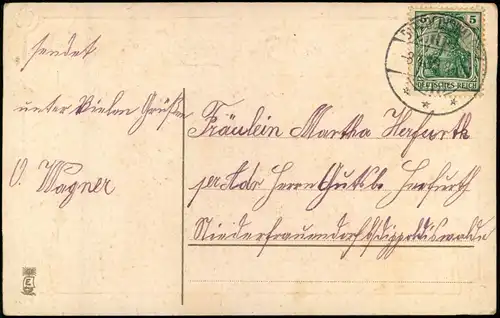 sendet
unter vielen Grüßen
O. Wagner
Fräulein Martha Herfurth
per Adr Herrn Gutsb. Herfurth
Niederfrauendorf b/ Dippoldiswalde
5 5
DEUTSCHES REICH
E